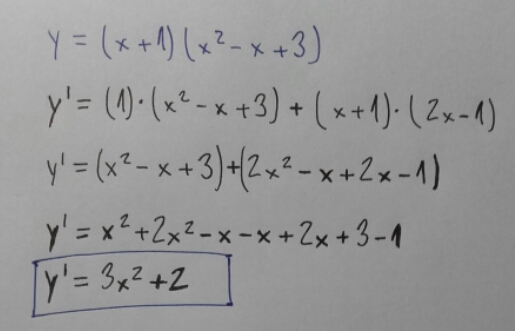 y = (x+1)(x² - x + 3)
y' = (1)·(x² - x + 3) + (x+1)·(2x-1)
y' = (x² - x + 3)+(2x² - x + 2x - 1)
y' = x² + 2x² - x - x + 2x + 3 - 1
y' = 3x² + 2